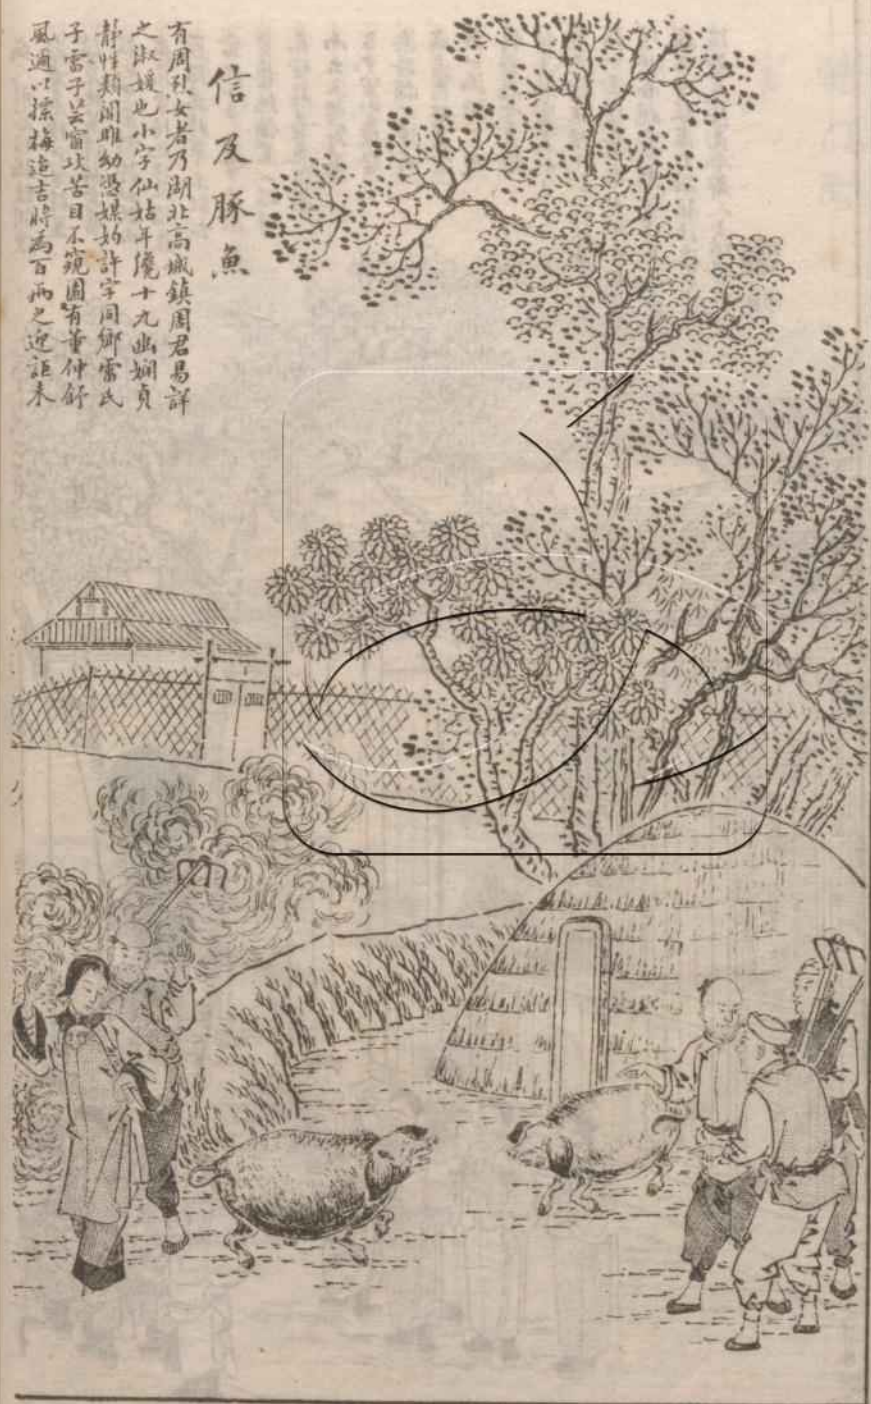 信及豚魚
有周烈女者乃湖北高城鎮周君易詳
之淑媛也小字仙姑年纔十九幽嫻貞
靜性頗閒雅幼憑媒妁許字同鄉雷氏
子雷子芸窗攻苦目不窺園有董仲舒
風適以摽梅迨吉將為百兩之迎詎未